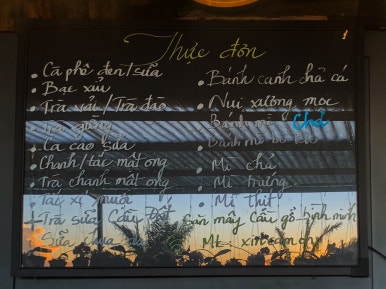 Thực đơn
Cà phê đen/sữa
Bạc xỉu
Trà vải/Trà đào
Trà gừng
Ca cao sữa
Chanh/tắc mật ong
Trà chanh mật ong
Tắc xí muội
Trà sữa
Sữa chua
Bánh canh chả cá
Nui xương mọc
Bánh mì
Bánh mì
Mì chả
Mì trứng
Mì thịt
Săn mây Cầu gỗ bình minh
xin cảm ơn